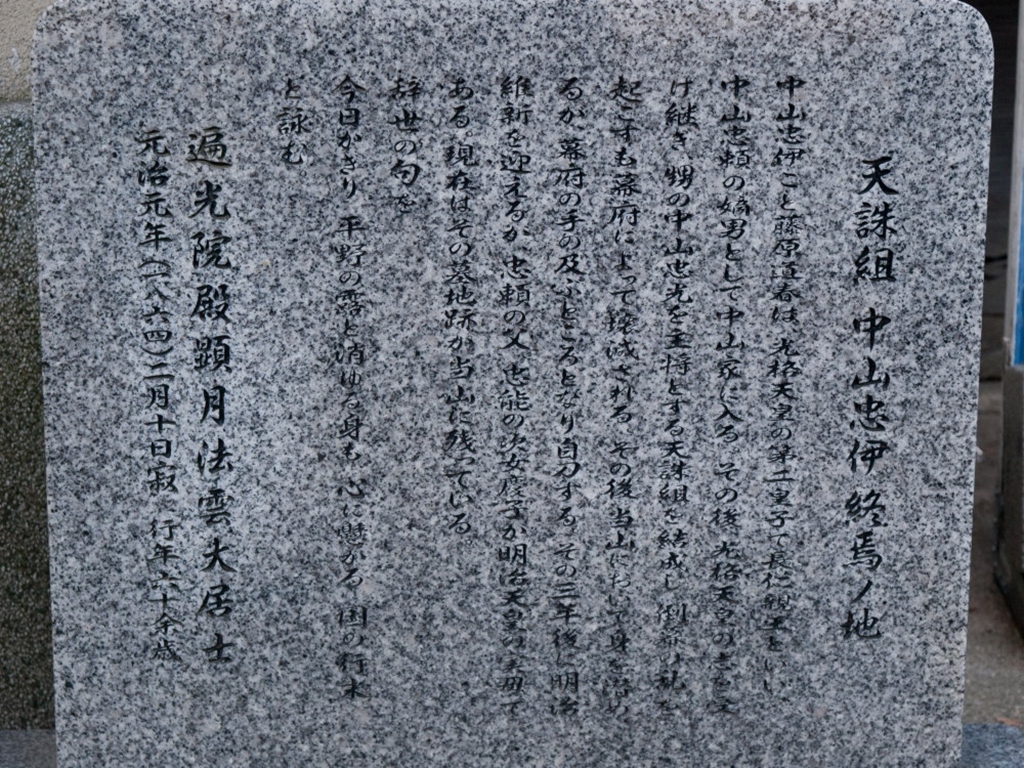 天誅組 中山忠伊 終焉ノ地
中山忠伊こと藤原道春は、光格天皇の第二皇子で長仁親王といい
中山忠頼の嫡男として中山家に入る。その後、光格天皇の志を受
け継ぎ、甥の中山忠光を主将とする天誅組を結成し、倒幕の乱を
起こすも幕府によって壊滅される。その後当山において身を潜め
るが、幕府の手の及ぶところとなり自刃する。その三年後に明治
維新を迎えるが、忠頼の父、忠能の次女慶子が明治天皇の実母で
ある。現在はその墓地跡が当山に残っている。
辞世の句を
今日かぎり 平野の露と消ゆる身も 心に懸かる 国の行末
と詠む
遍光院殿顕月法雲大居士
元治元年(一八六四)二月十日寂 行年六十余歳